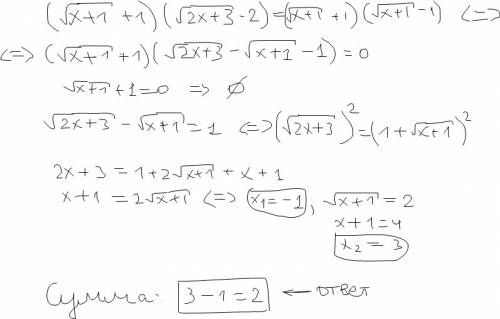 (√x+1 + 1)(√2x+3 - 2) = (√x+1 + 1)(√x+1 - 1) <=>
<=> (√x+1 + 1)(√2x+3 - √x+1 - 1) = 0
√x+1 + 1 = 0 => ∅
√2x+3 - √x+1 = 1 <=> (√2x+3)² = (1 + √x+1)²
2x + 3 = 1 + 2√x+1 + x + 1
x + 1 = 2√x+1 <=> x₁ = -1, √x+1 = 2
x + 1 = 4
x₂ = 3
Сумма: 3 - 1 = 2 ← ответ